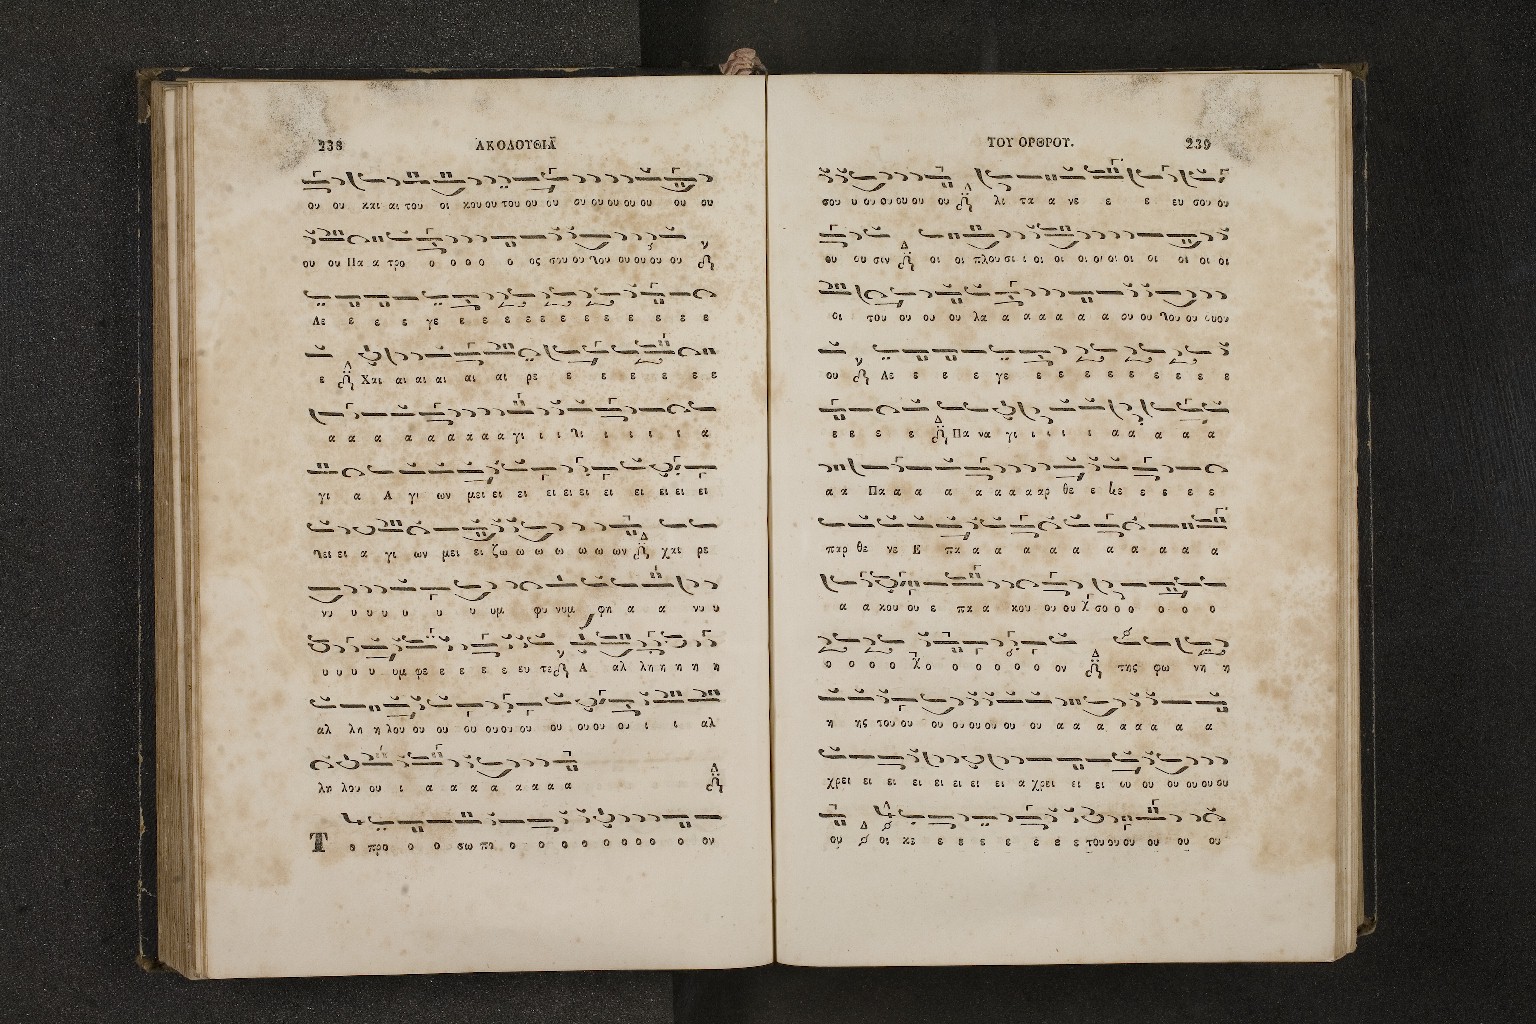 238 ΑΚΟΛΟΥΘΙΑ
ου ου και αι του οι κου ου του ου ου ου ου ου ου ου ου ου
ου ου Πα α τρο ο ο ο ο ο ος σου ου ου ου ου ου ου
Λε ε ε ε γε ε ε ε ε ε ε ε ε ε ε ε ε
ε Χαι αι αι αι αι αι ρε ε ε ε ε ε ε
α α α α α α α α α γι ι ι ι ι ι ι α
γι α Α γι ων μει ει ει ει ει ει ει ει ει ει
ει ει α γι ων μει ει ζω ω ω ω ω ω ω ων χαι ρε
νυ υ υ υ υ υ υ υμ φυ νυμ φη α α νυ υ
υ υ υ υ υμ φε ε ε ε ε ε ευ τε Α αλ λη η η η η
αλ λη η λου ου ου ου ου ου ου ου ου ου ου ι ι αλ
λη λου ου ι α α α α α α α α
Το προ ο ο σω πο ο ο ο ο ο ο ο ο ο ον
ΤΟΥ ΟΡΘΡΟΥ. 239
σου υ ου ου ου ου ου ου λι τα α νε ε ε ευ σου ου
ου ου σιν οι οι πλου σι ι οι οι οι οι οι οι οι οι οι
οι του ου ου ου λα α α α α α α ου ου ου ου ου
ου Λε ε ε ε γε ε ε ε ε ε ε ε ε ε
ε ε ε ε Πα να γι ι ι ι ι α α α α α α
α α Πα α α α α α α αρ θε ε ε ε ε ε ε
παρ θε νε Ε πα α α α α α α α α α
α α κου ου ε πα α κου ου ου χ σο ο ο ο ο ο
ο ο ο ο χο ο ο ο ο ο ο ον της φω νη η
η ης του ου ου ου ου ου ου ου α α α α α α α α
χρει ει ει ει ει ει ει ει α χρει ει ει ου ου ου ου ου ου
ου οι κε ε ε ε ε ε ε ε ε του ου ου ου ου ου